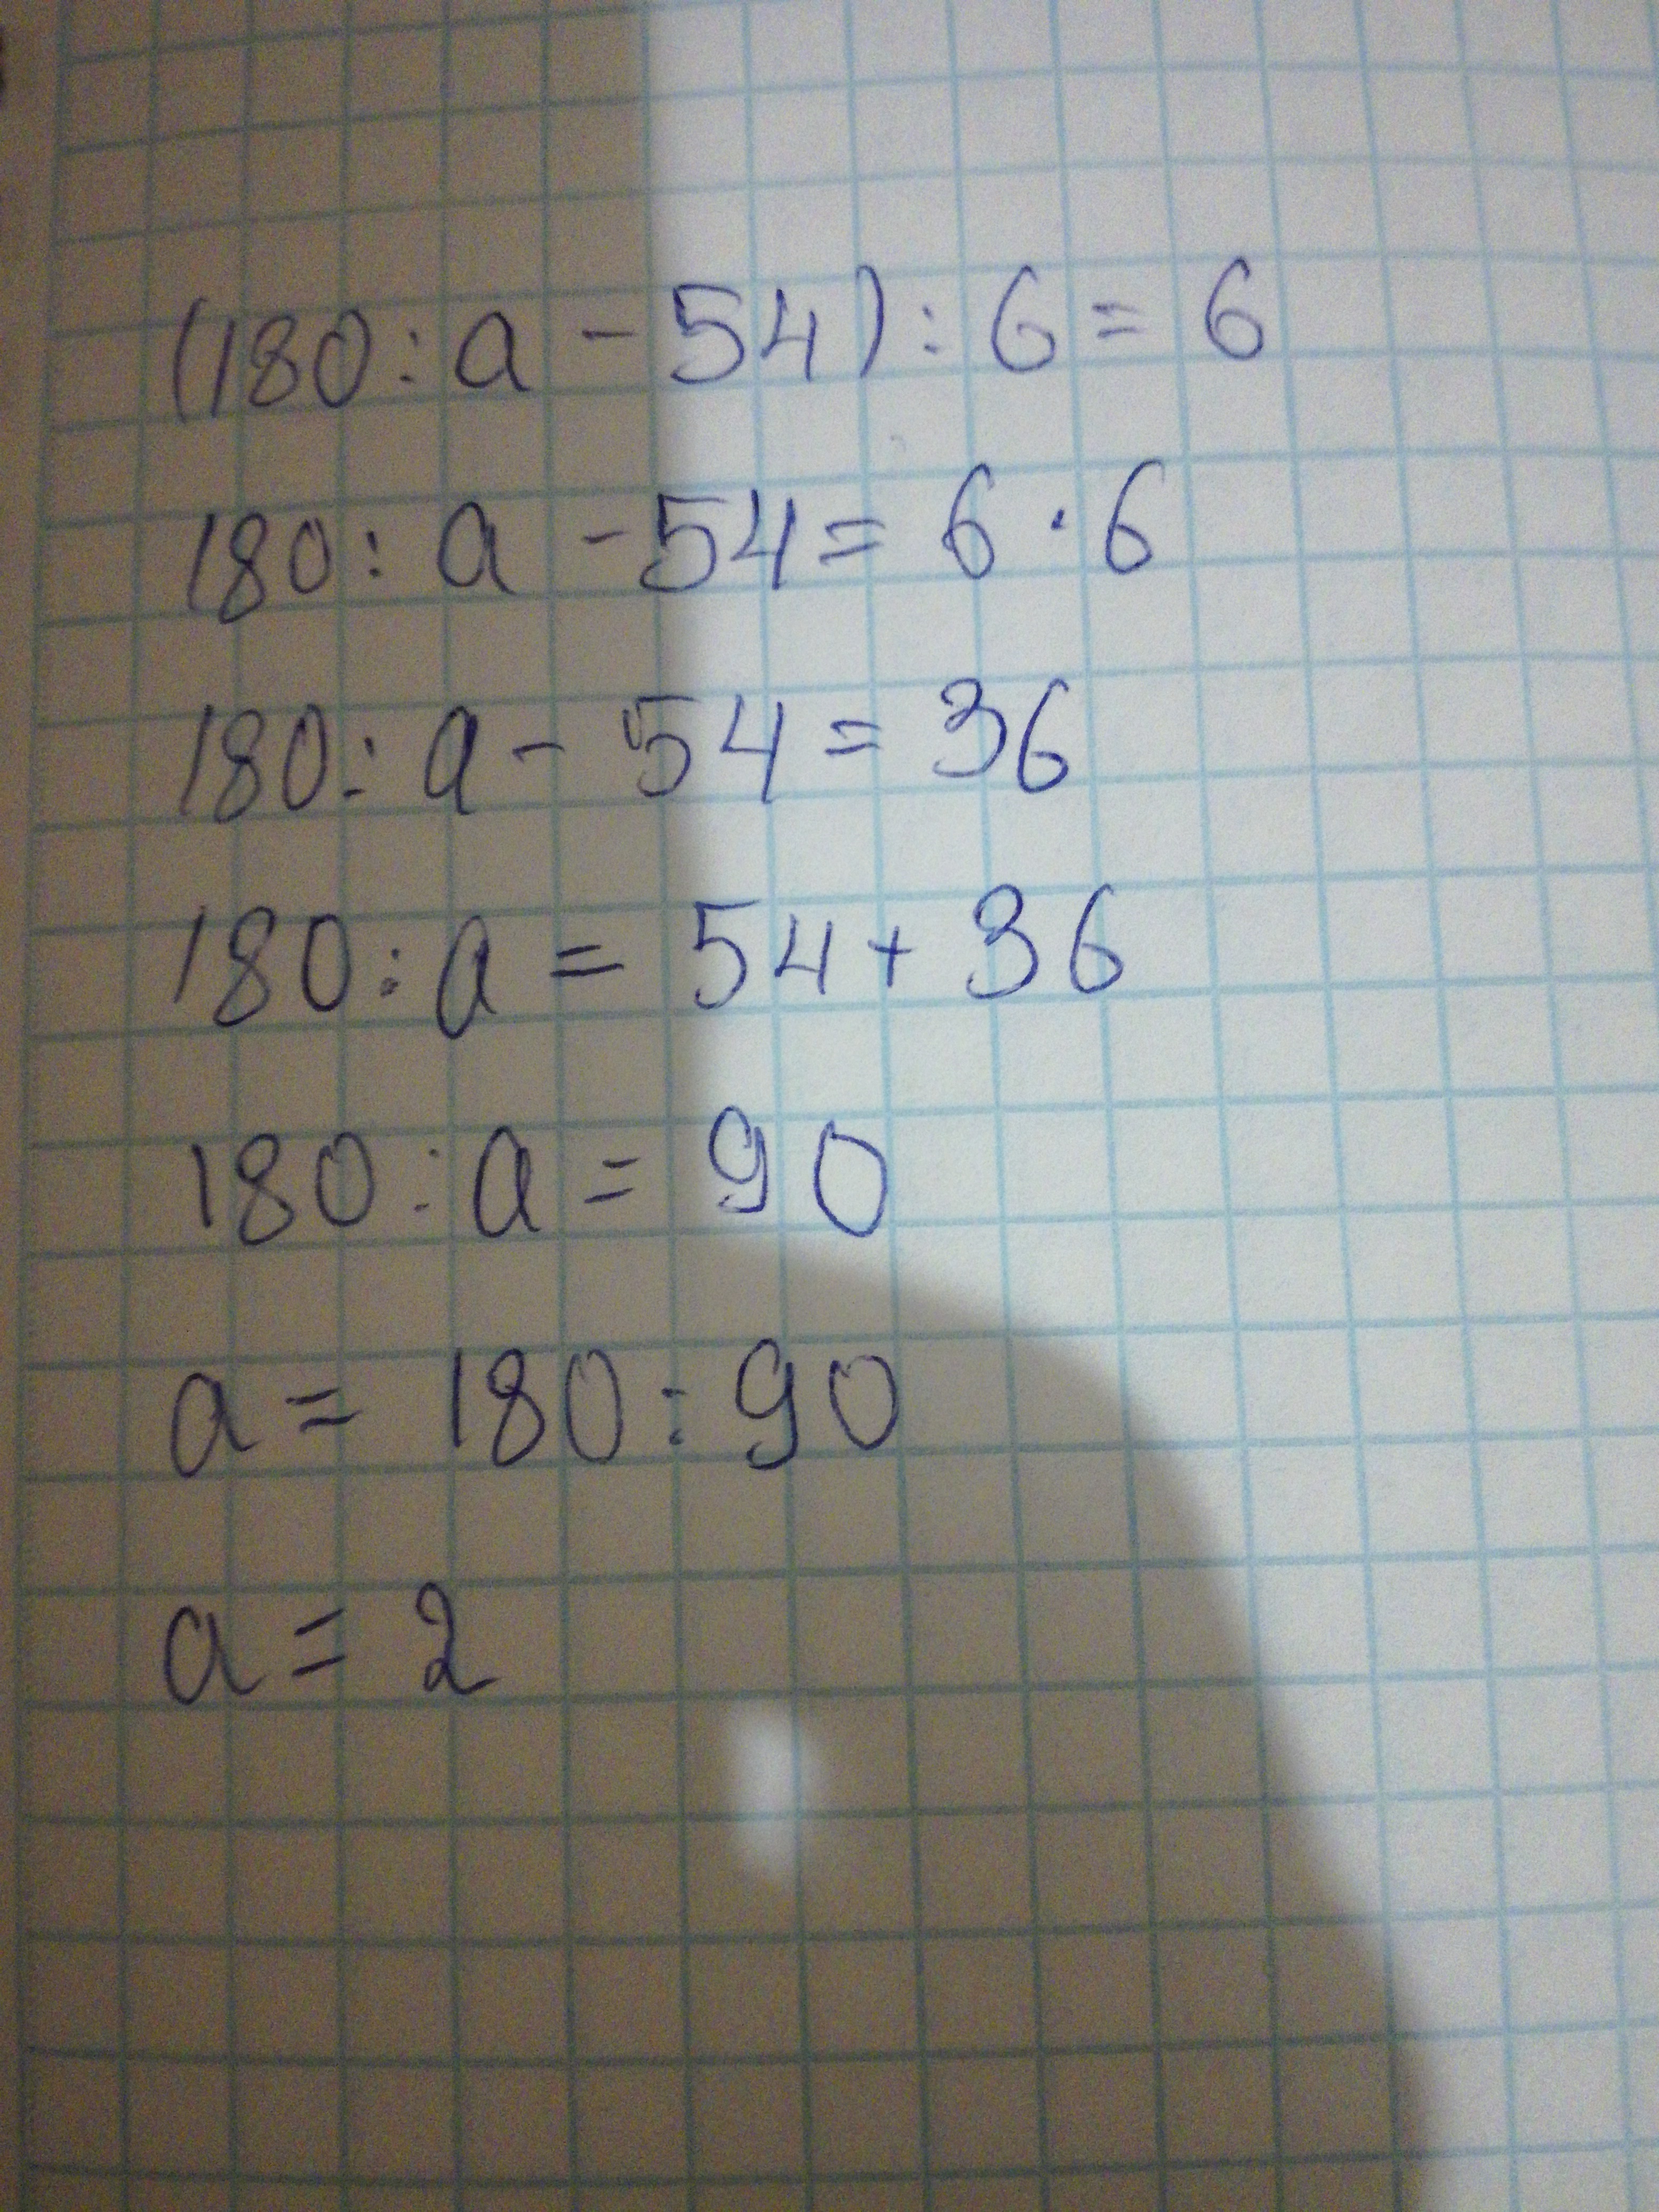 (180 : a - 54) : 6 = 6
180 : a - 54 = 6 · 6
180 : a - 54 = 36
180 : a = 54 + 36
180 : a = 90
a = 180 : 90
a = 2